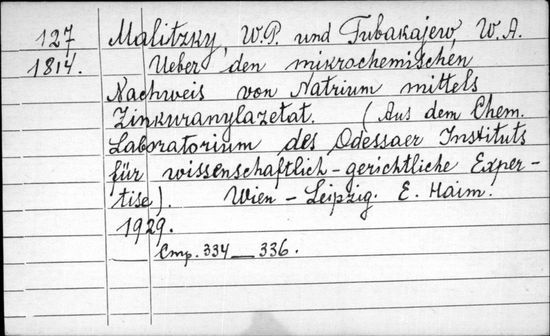 127 Malitzky, W.P. und Tubakajew, W.A.
1814. Ueber den mikrochemischen
Nachweis von Natrium mittels
Zinkuranylazetat. (Aus dem Chem.
Laboratorium des Odessaer Instituts
für wissenschaftlich-gerichtliche Exper-
tise). Wien - Leipzig. E. Haim.
1929.
Стр. 334 — 336.